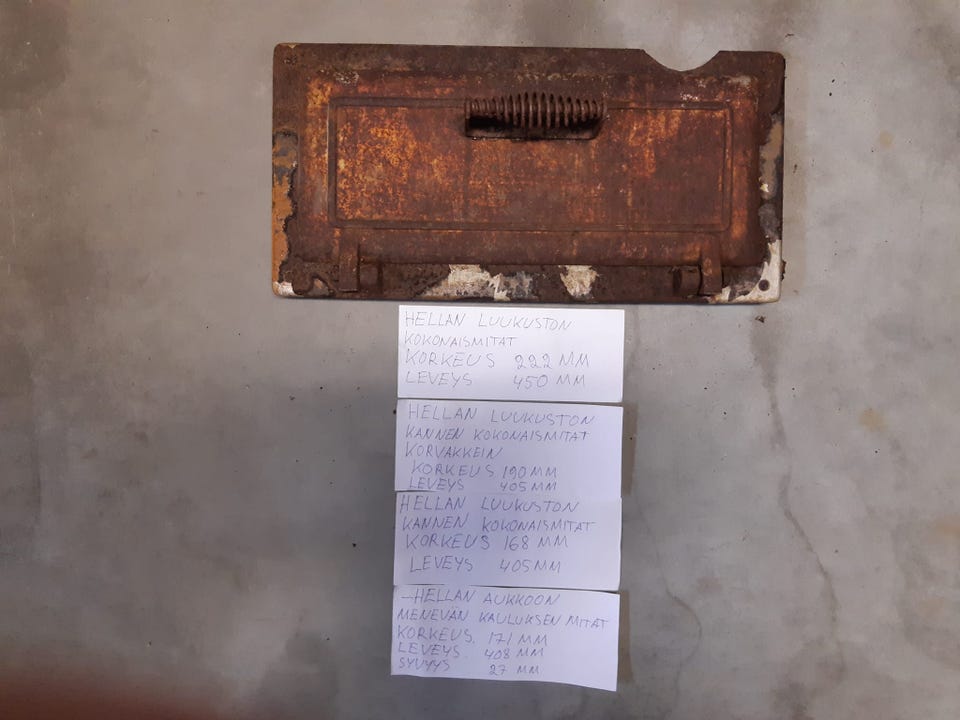 HELLAN LUUKUSTON
KOKONAISMITAT
KORKEUS 222 MM
LEVEYS 450 MM
HELLAN LUUKUSTON
KANNEN KOKONAISMITAT
KORVAKKEIN
KORKEUS 190 MM
LEVEYS 405 MM
HELLAN LUUKUSTON
KANNEN KOKONAISMITAT
KORKEUS 168 MM
LEVEYS 405 MM
-HELLAN AUKKOON
MENEVÄN KAULUKSEN MITAT
KORKEUS. 171 MM
LEVEYS. 408 MM
SYVYYS 27 MM